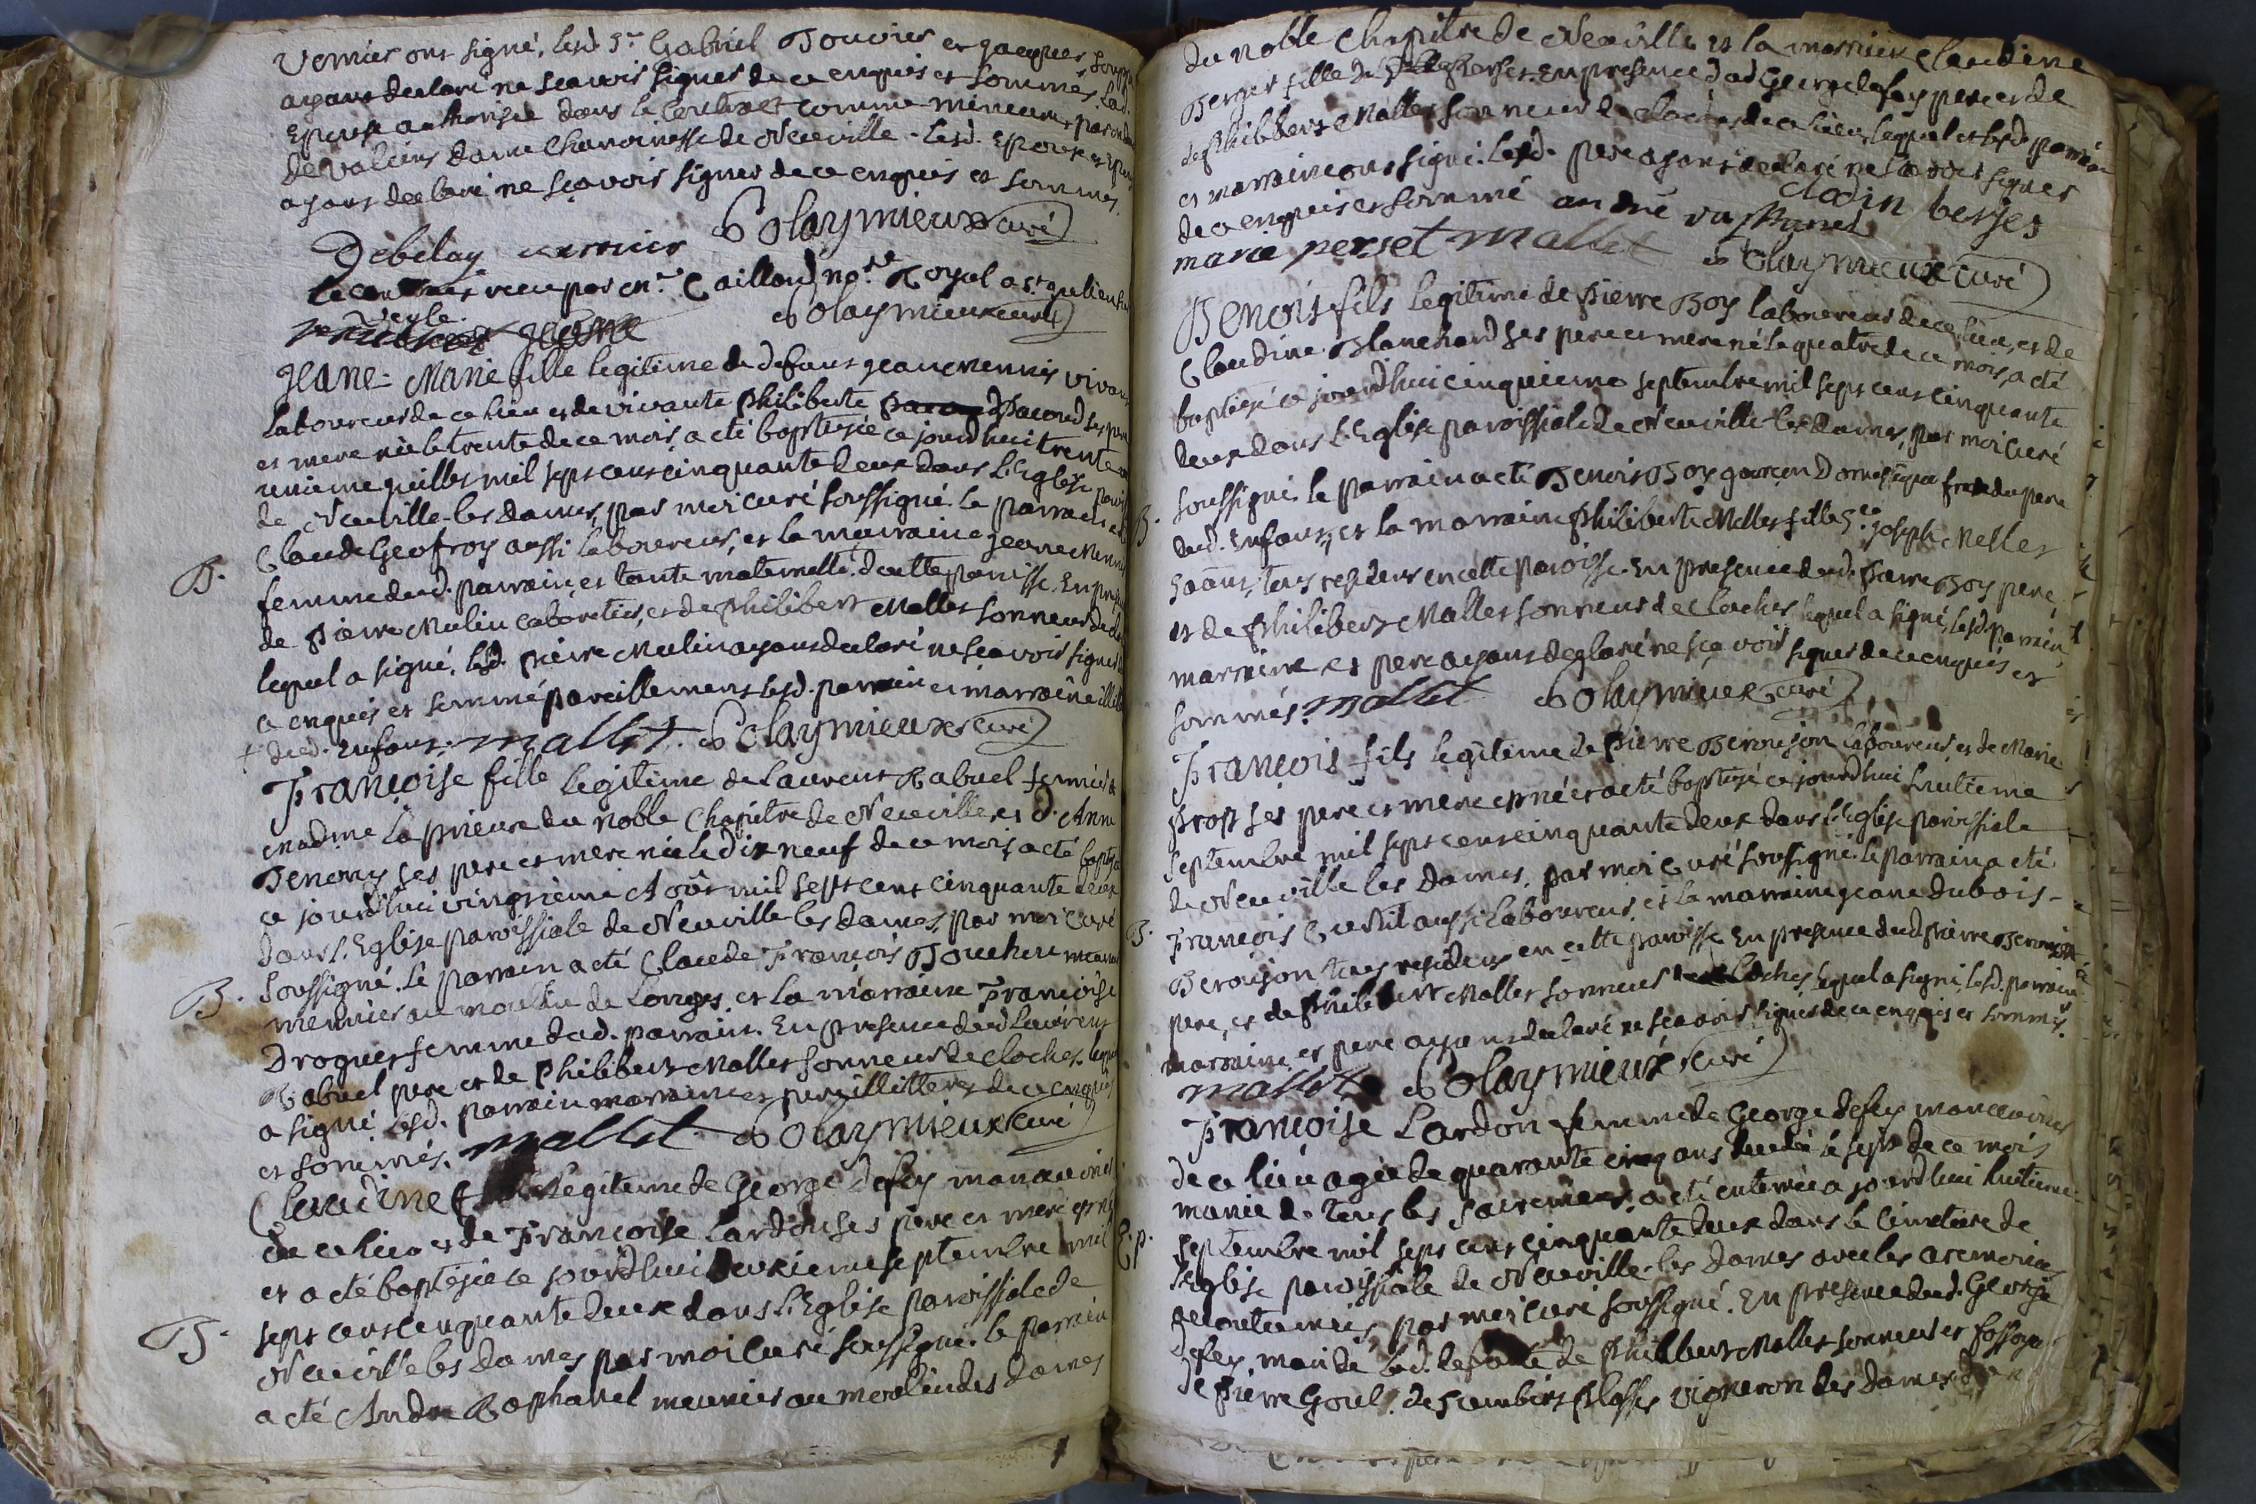 Vernier ont signé, lesd. Sr. Gabriel Bouvier et jacques
ayant declaré ne sçavoir signer de ce enquis et sommés. lad.
Epouse authorisée dans le contract comme mineure par
de Valiens dame Chanoinesse de Neuville. Lesd. Epoux et
ayans declaré ne sçavoir signer de ce enquis et sommés.
Debelay vernier Colaymieux curé
receu par Mr. Caillard nore. Royal a
veyle. Colaymieux curé
Jeane-Marie fille legitime de defunt jean mennis vivant
laboureur de ce lieu et de vivante philiberte pacoud ses pere
et mere née le trente de ce mois, a eté baptisée ce jourdhui trente
unieme juillet mil sept cent cinquante deux dans l'Eglise parois
de Neuville-les dames, par moi curé soussigné. Le parrain
B. Claude Geofroy aussi laboureur, et la marraine jeane menni
femme dud. parrain, et tante maternelle d
de Pierre Mulin cabaretier, et de philibert Mallet sonneur de
lequel a signé, led. pierre Mulin ayant declaré ne sçavoir signer
a enquis et sommé pareillement lesd. parrain et marraine
+ dud. Enfant. mallet. Colaymieux curé
Françoise fille legitime de Laurent Rabuel fermier de
madme la prieure du noble Chapitre de Neuville, et d. Anne
Benemy ses pere et mere née le dix neuf de ce mois, a eté baptisée
ce jourdhui vingtieme Août mil sept cent cinquante deux
dans l'Eglise paroissiale de Neuville les dames, par moi curé
B. Soussigné. Le parrain a eté Claude François Bouchu
meunier au moulin de Longes, et la marraine Françoise
Droguet femme dud. parrain. En presence dud Laurent
Rabuel pere et de Philibert Mallet sonneur de cloches, lequel
a signé, lesd. parrain marraine et pere illitterés de ce enquis
et sommés. mallet Colaymieux curé
Claudine fille legitime de George defey manoeuvre
de ce lieu et de Françoise Lardon ses pere et mere est née
et a eté baptisée ce jourdhui deuxieme septembre mil
B. sept cent cinquante deux dans l'Eglise paroissiale de
Neuville les dames par moi curé soussigné. le parrain
a eté Andre Raphanel meunier au moulin des dames
du noble Chapitre de Neuville et la marraine Claudine
Berger fille de En presence dud George defey pere et de
de Philibert Mallet sonneur de cloches de ce lieu, lequel et lesd. parrain
et marraine ont signé. led. pere ayant declaré ne sçavoir signer
de ce enquis et sommé andré clodin berjer
marie perset mallet Colaymieux curé
Benoist fils legitime de pierre Boy laboureur de ce lieu, et de
Claudine Blanchard ses pere et mere né le quatre de ce mois, a eté
baptisé ce jourdhui cinquieme septembre mil sept cent cinquante
deux dans l'Eglise paroissiale de Neuville les dames, par moi curé
B. soussigné. le parrain a eté Benoist Boy garçon Domestique frere du pere
dud. Enfant, et la marraine philiberte Mellet fille joseph Mellet
tous residens en cette paroisse. En presence dud. pierre Boy pere,
et de Philibert Mallet sonneur de cloches lequel a signé, lesd. parrain,
marraine et pere ayans declaré ne sçavoir signer de ce enquis et
sommés. mallet Colaymieux curé
François fils legitime de pierre Beroujon laboureur et de Marie
prost ses pere et mere est né et a eté baptisé ce jourdhui huitieme
septembre mil sept cent cinquante deux dans l'Eglise paroissiale
de Neuville les dames, par moi curé soussigné. le parrain a eté
B. François Curtil aussi laboureur, et la marraine jeane dubois-
Beroujon tous residens en cette paroisse En presence dud pierre Beroujon
pere, et de philibert Mallet sonneur de cloches lequel a signé, lesd. parrain
marraine, et pere ayans declaré ne sçavoir signer de ce enquis et sommés.
mallet Colaymieux curé
Françoise Lardon femme de George defey manoeuvre
de ce lieu agée de quarante cinq ans decedée le sept de ce mois
munie de tous les sacremens, a eté enterrée a jourdhui huitieme
E. p. septembre mil sept cent cinquante deux dans le Cimetiere de
l'Eglise paroissiale de Neuville-les dames avec les ceremonies
accoutumées, par moi curé soussigné. En presence dud. George
defey, mari de lad. defunte de philibert Mallet sonneur et fossoyeur
de pierre Goul. de vigneron des dames